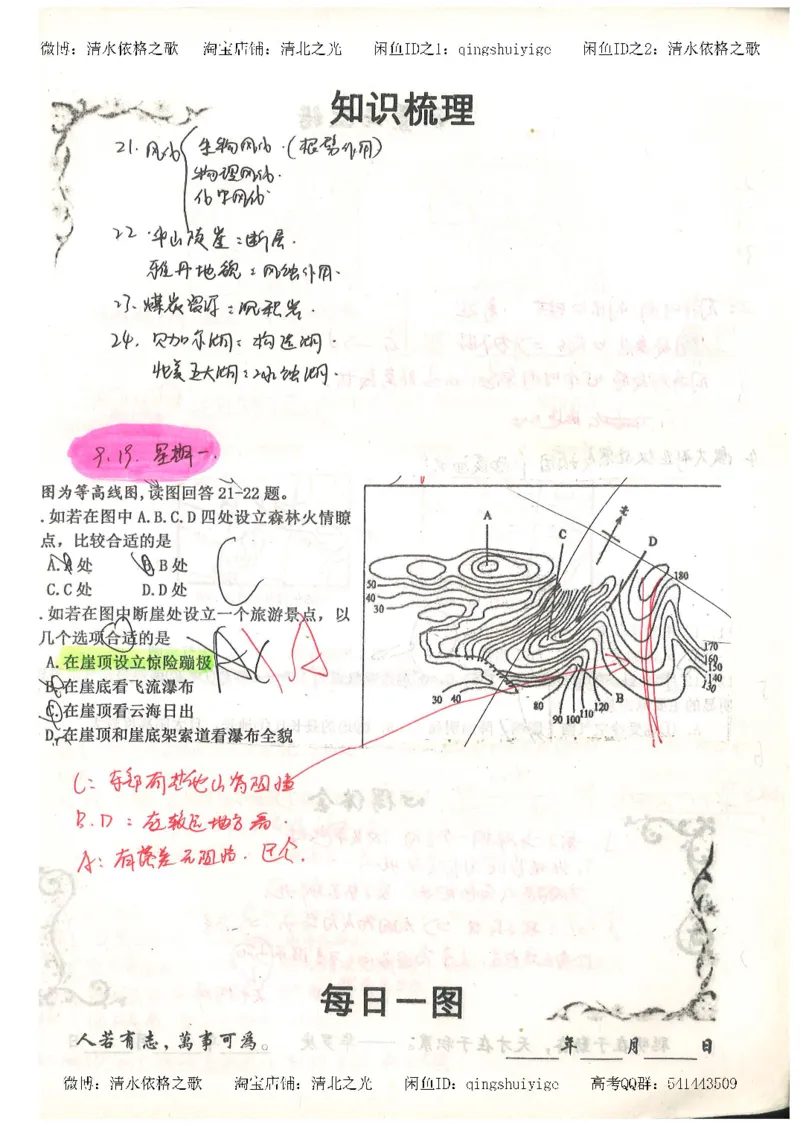 微博：清水依格之歌 淘宝店铺：清北之光 闲鱼ID之1：qingshuiyige 闲鱼ID之2：清水依格之歌
知识梳理
21. 风化 生物风化.(根劈作用)
物理风化.
化学风化
22. 华山陡崖：断层.
雅丹地貌：风蚀作用.
23. 煤炭资源：沉积岩.
24. 贝加尔湖：构造湖.
北美五大湖：冰蚀湖.
9.19. 星期一.
图为等高线图,读图回答 21-22 题。
. 如若在图中 A.B.C.D 四处设立森林火情瞭
点，比较合适的是
A.A 处 B.B 处
C.C 处 D.D 处
C
. 如若在图中断崖处设立一个旅游景点，以
几个选项合适的是
A. 在崖顶设立惊险蹦极
B. 在崖底看飞流瀑布
C. 在崖顶看云海日出
D. 在崖顶和崖底架索道看瀑布全貌
A
A C D
50
40
30
180
170
160
150
140
130
30 40
80
90 100 110 120
B
C：东部有其他山脊阻挡
B.D：在较远地方看.
A：有高差无阻挡.
每日一图
人若有志，萬事可為。
年 月 日
微博：清水依格之歌 淘宝店铺：清北之光 闲鱼ID：qingshuiyige 高考QQ群：541443509